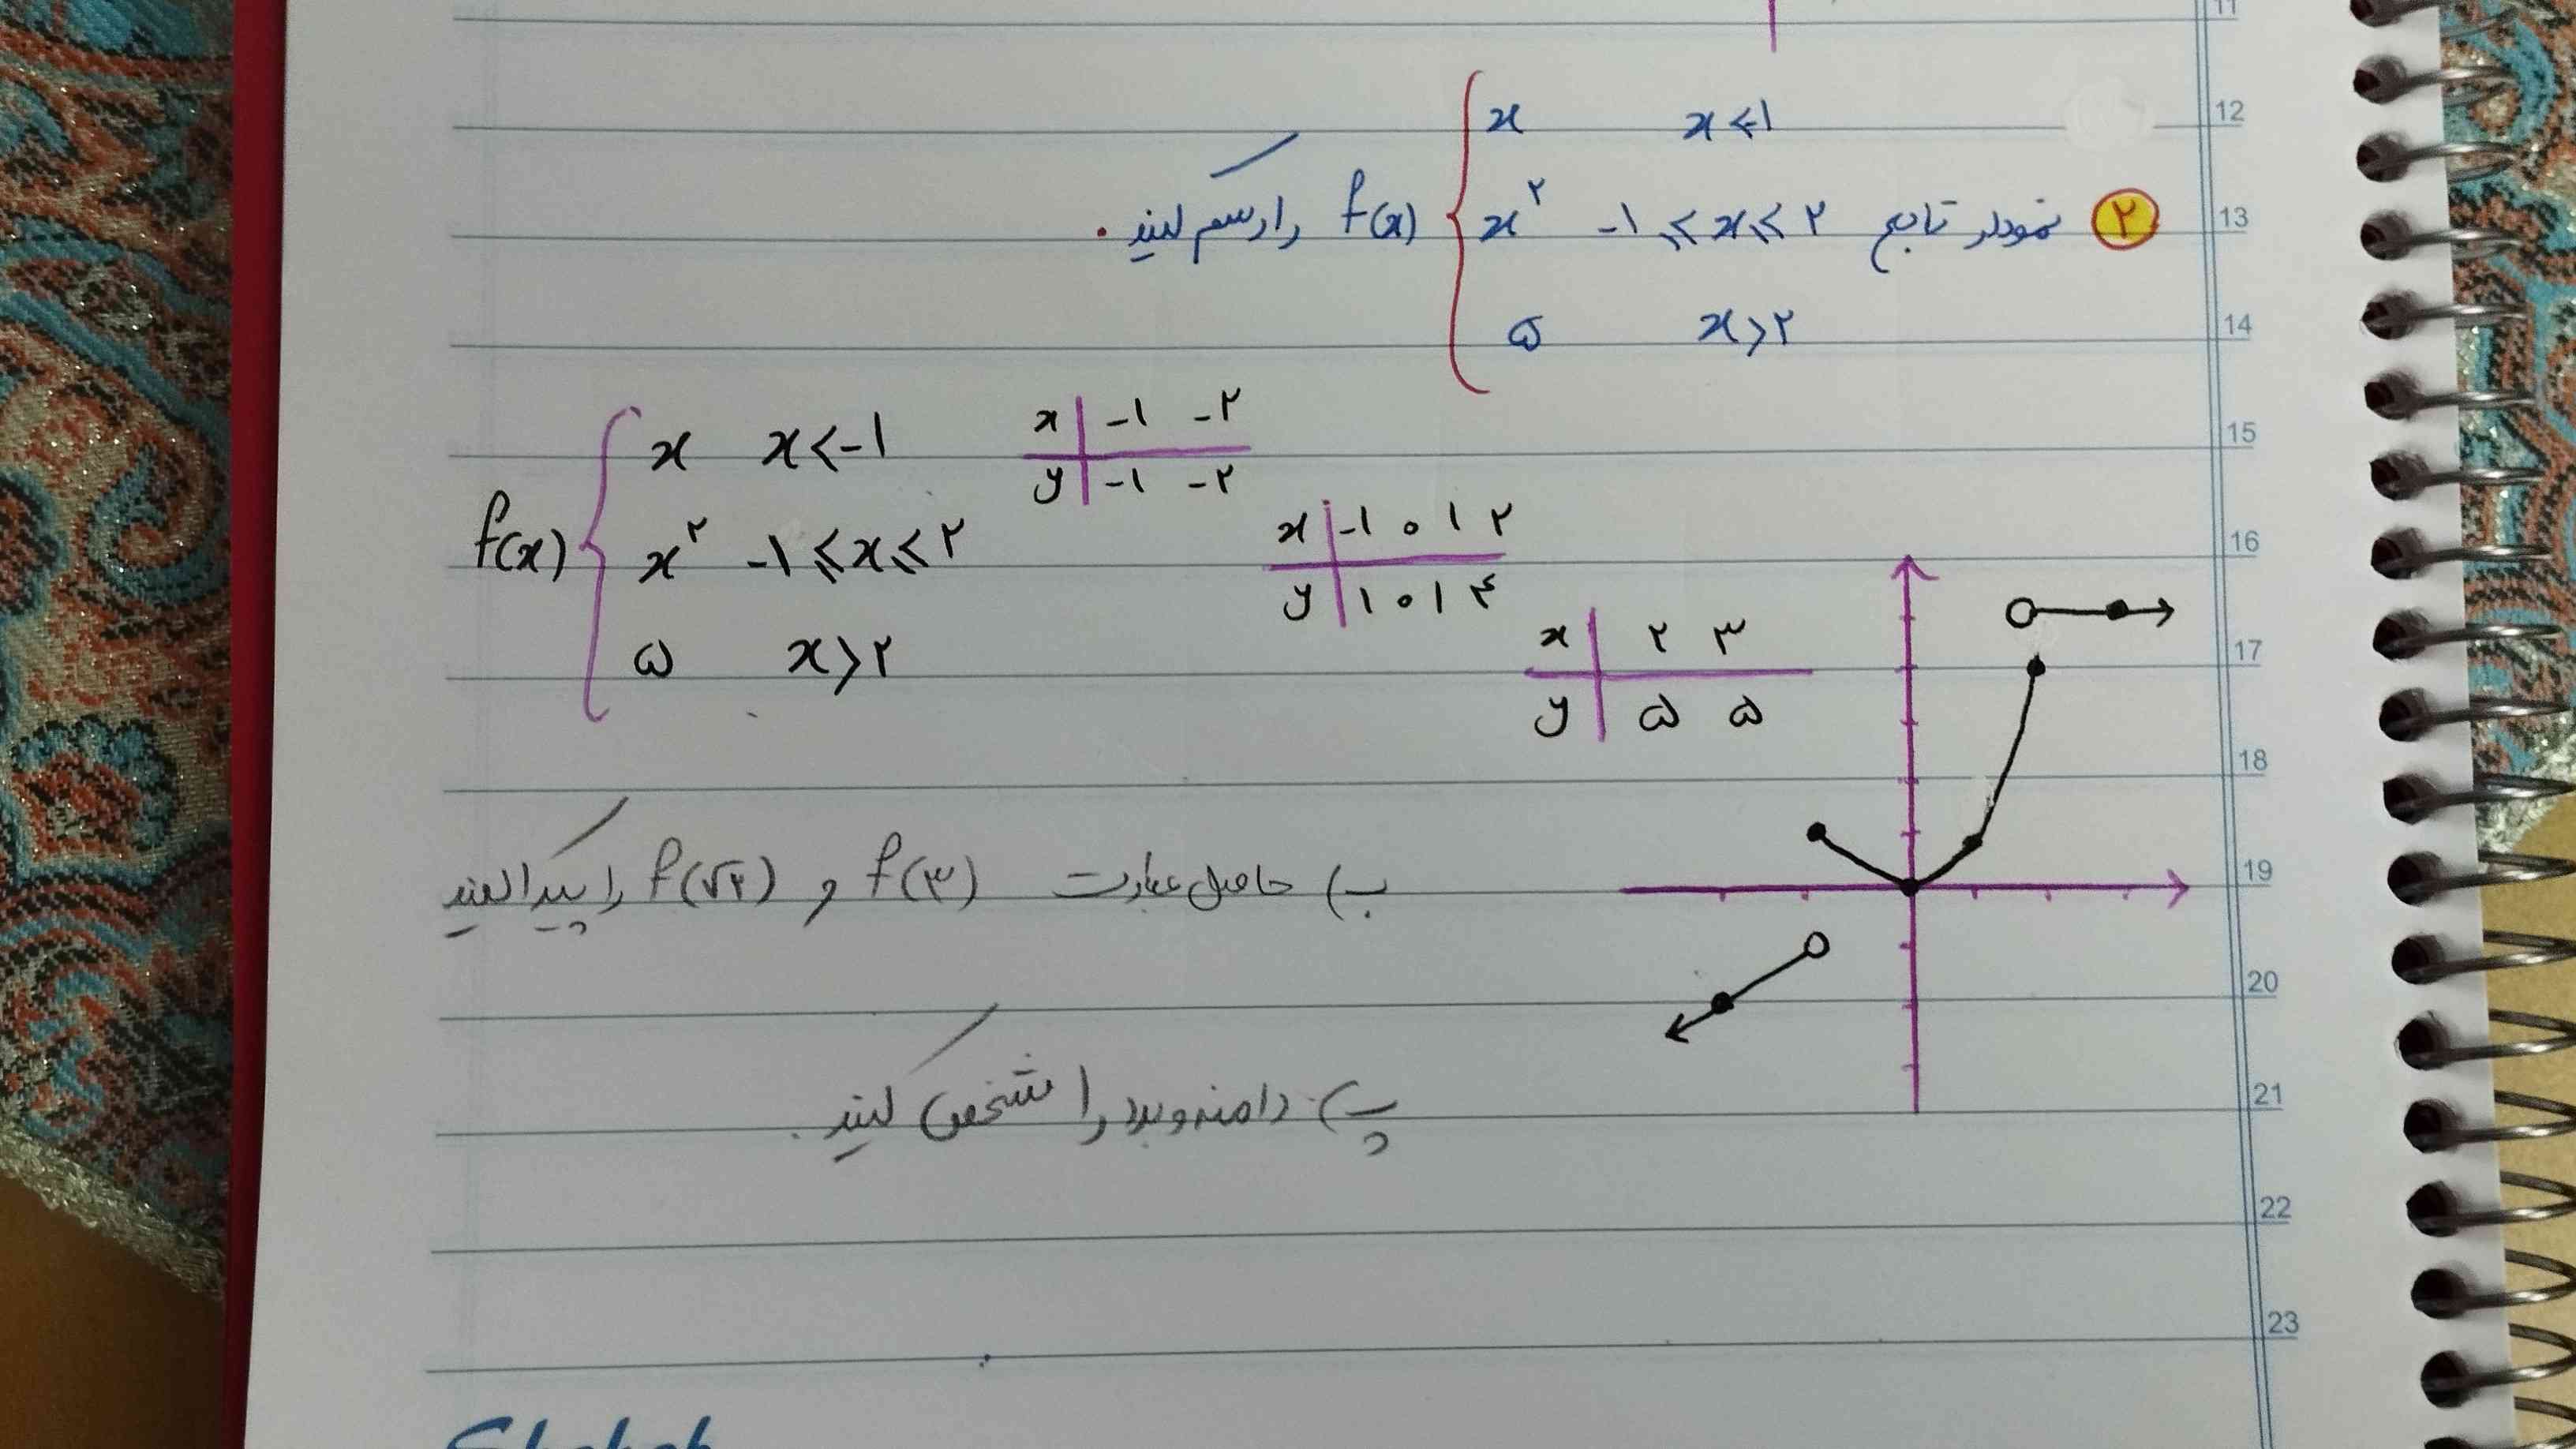 11
12
13
14
15
16
17
18
19
20
21
22
23
② نمودار تابع f(x) { x x<-1
x² -1≤x≤2
۵ x>۲
را رسم کنید.
f(x) { x x<-۱
x² -۱≤x≤۲
۵ x>۲
x | -۱ -۲
y | -۱ -۲
x | -۱ ۰ ۱ ۲
y | ۱ ۰ ۱ ۴
x | ۲ ۳
y | ۵ ۵
ب) حاصل عبارت f(۳) و f(√۲) را پیدا کنید
پ) دامنه و برد را مشخص کنید.